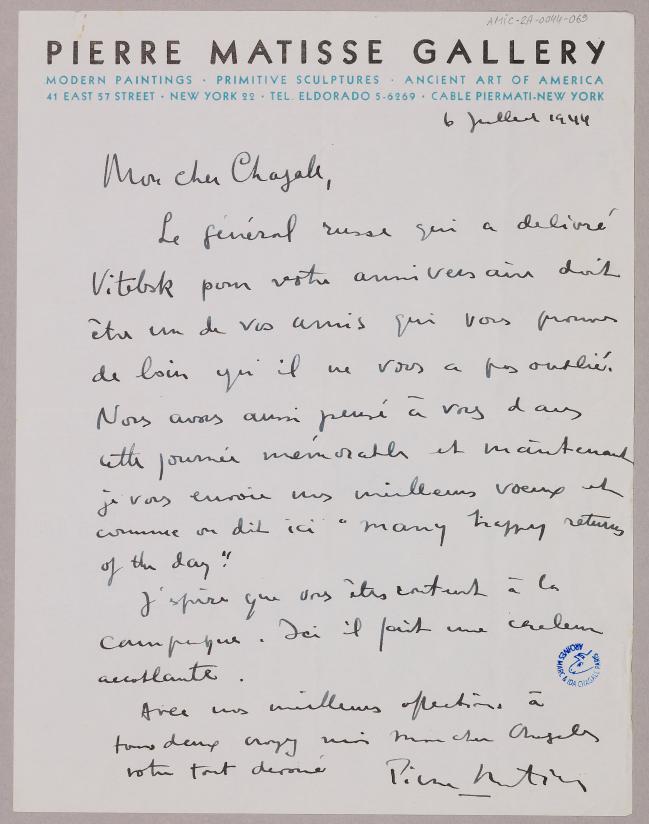 AMIC-2A-0044-069
PIERRE MATISSE GALLERY
MODERN PAINTINGS · PRIMITIVE SCULPTURES · ANCIENT ART OF AMERICA
41 EAST 57 STREET · NEW YORK 22 · TEL. ELDORADO 5-6269 · CABLE PIERMATI-NEW YORK
6 Juillet 1944
Mon cher Chagall,
Le général russe qui a delivré
Vitebsk pour votre anniversaire doit
être un de vos amis qui vous prouve
de loin qu'il ne vous a pas oublié.
Nous avons aussi pensé à vous dans
cette journée mémorable et maintenant
je vous envoie nos meilleurs voeux et
comme on dit ici "many happy returns
of the day"
J'espère que vous êtes content à la
campagne. Ici il fait une chaleur
accablante.
Avec nos meilleures affections à
tous deux croyez moi mon cher Chagall
votre tout devoué Pierre Matisse
ARCHIVES MARC & IDA CHAGALL PARIS